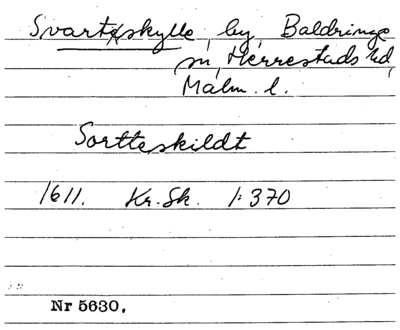 Svarteskylle, by, Baldringe
sn, Herrestads hd,
Malm. l.
Sortteskildt
1611. Kr. Sk. 1:370
Nr 5630.